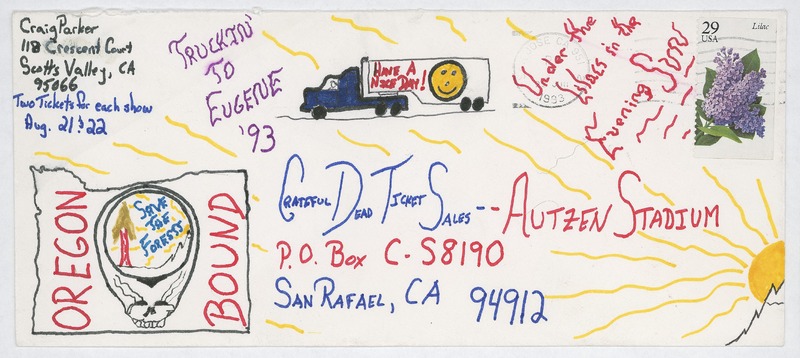 Craig Parker
118 Crescent Court
Scotts Valley, CA
95066
Two Tickets for each show
Aug. 21 & 22
TRUCKIN'
TO
EUGENE
'93
HAVE A
NICE DAY!
Under the
lilacs in the
Evening Sun
29
USA
Lilac
SAN JOSE CA
1993
OREGON
BOUND
SAVE
THE
FORESTS
GRATEFUL DEAD TICKET SALES -- AUTZEN STADIUM
P.O. BOX C-S8190
SAN RAFAEL, CA 94912